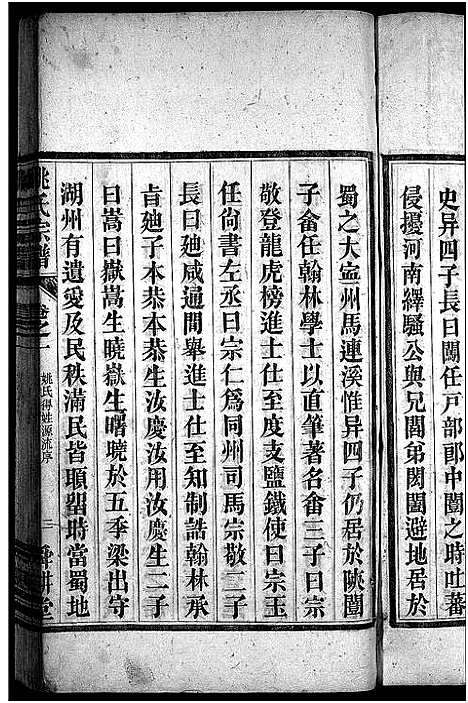 史异四子長曰闈任戸部郎中闈之時吐蕃
侵擾河南繹騷公與兄閣弟閎闓避地居於
蜀之大寍州馬連溪惟异四子仍居於陜闓
子畬任翰林學士以直筆著名畬三子曰宗
敬登龍虎榜進士仕至度支鹽鐵使曰宗玉
任尙書左丞曰宗仁爲同州司馬宗敬二子
長曰廸咸通間舉進士仕至知制誥翰林承
旨廸子本恭本恭生汝慶汝用汝慶生二子
曰嵩曰嶽嵩生曉嶽生曙曉於五季梁出守
湖州有遺愛及民秩滿民皆頭畱時當蜀地
姚氏宗譜 卷之一 姚氏得姓源流序 三 舜耕堂